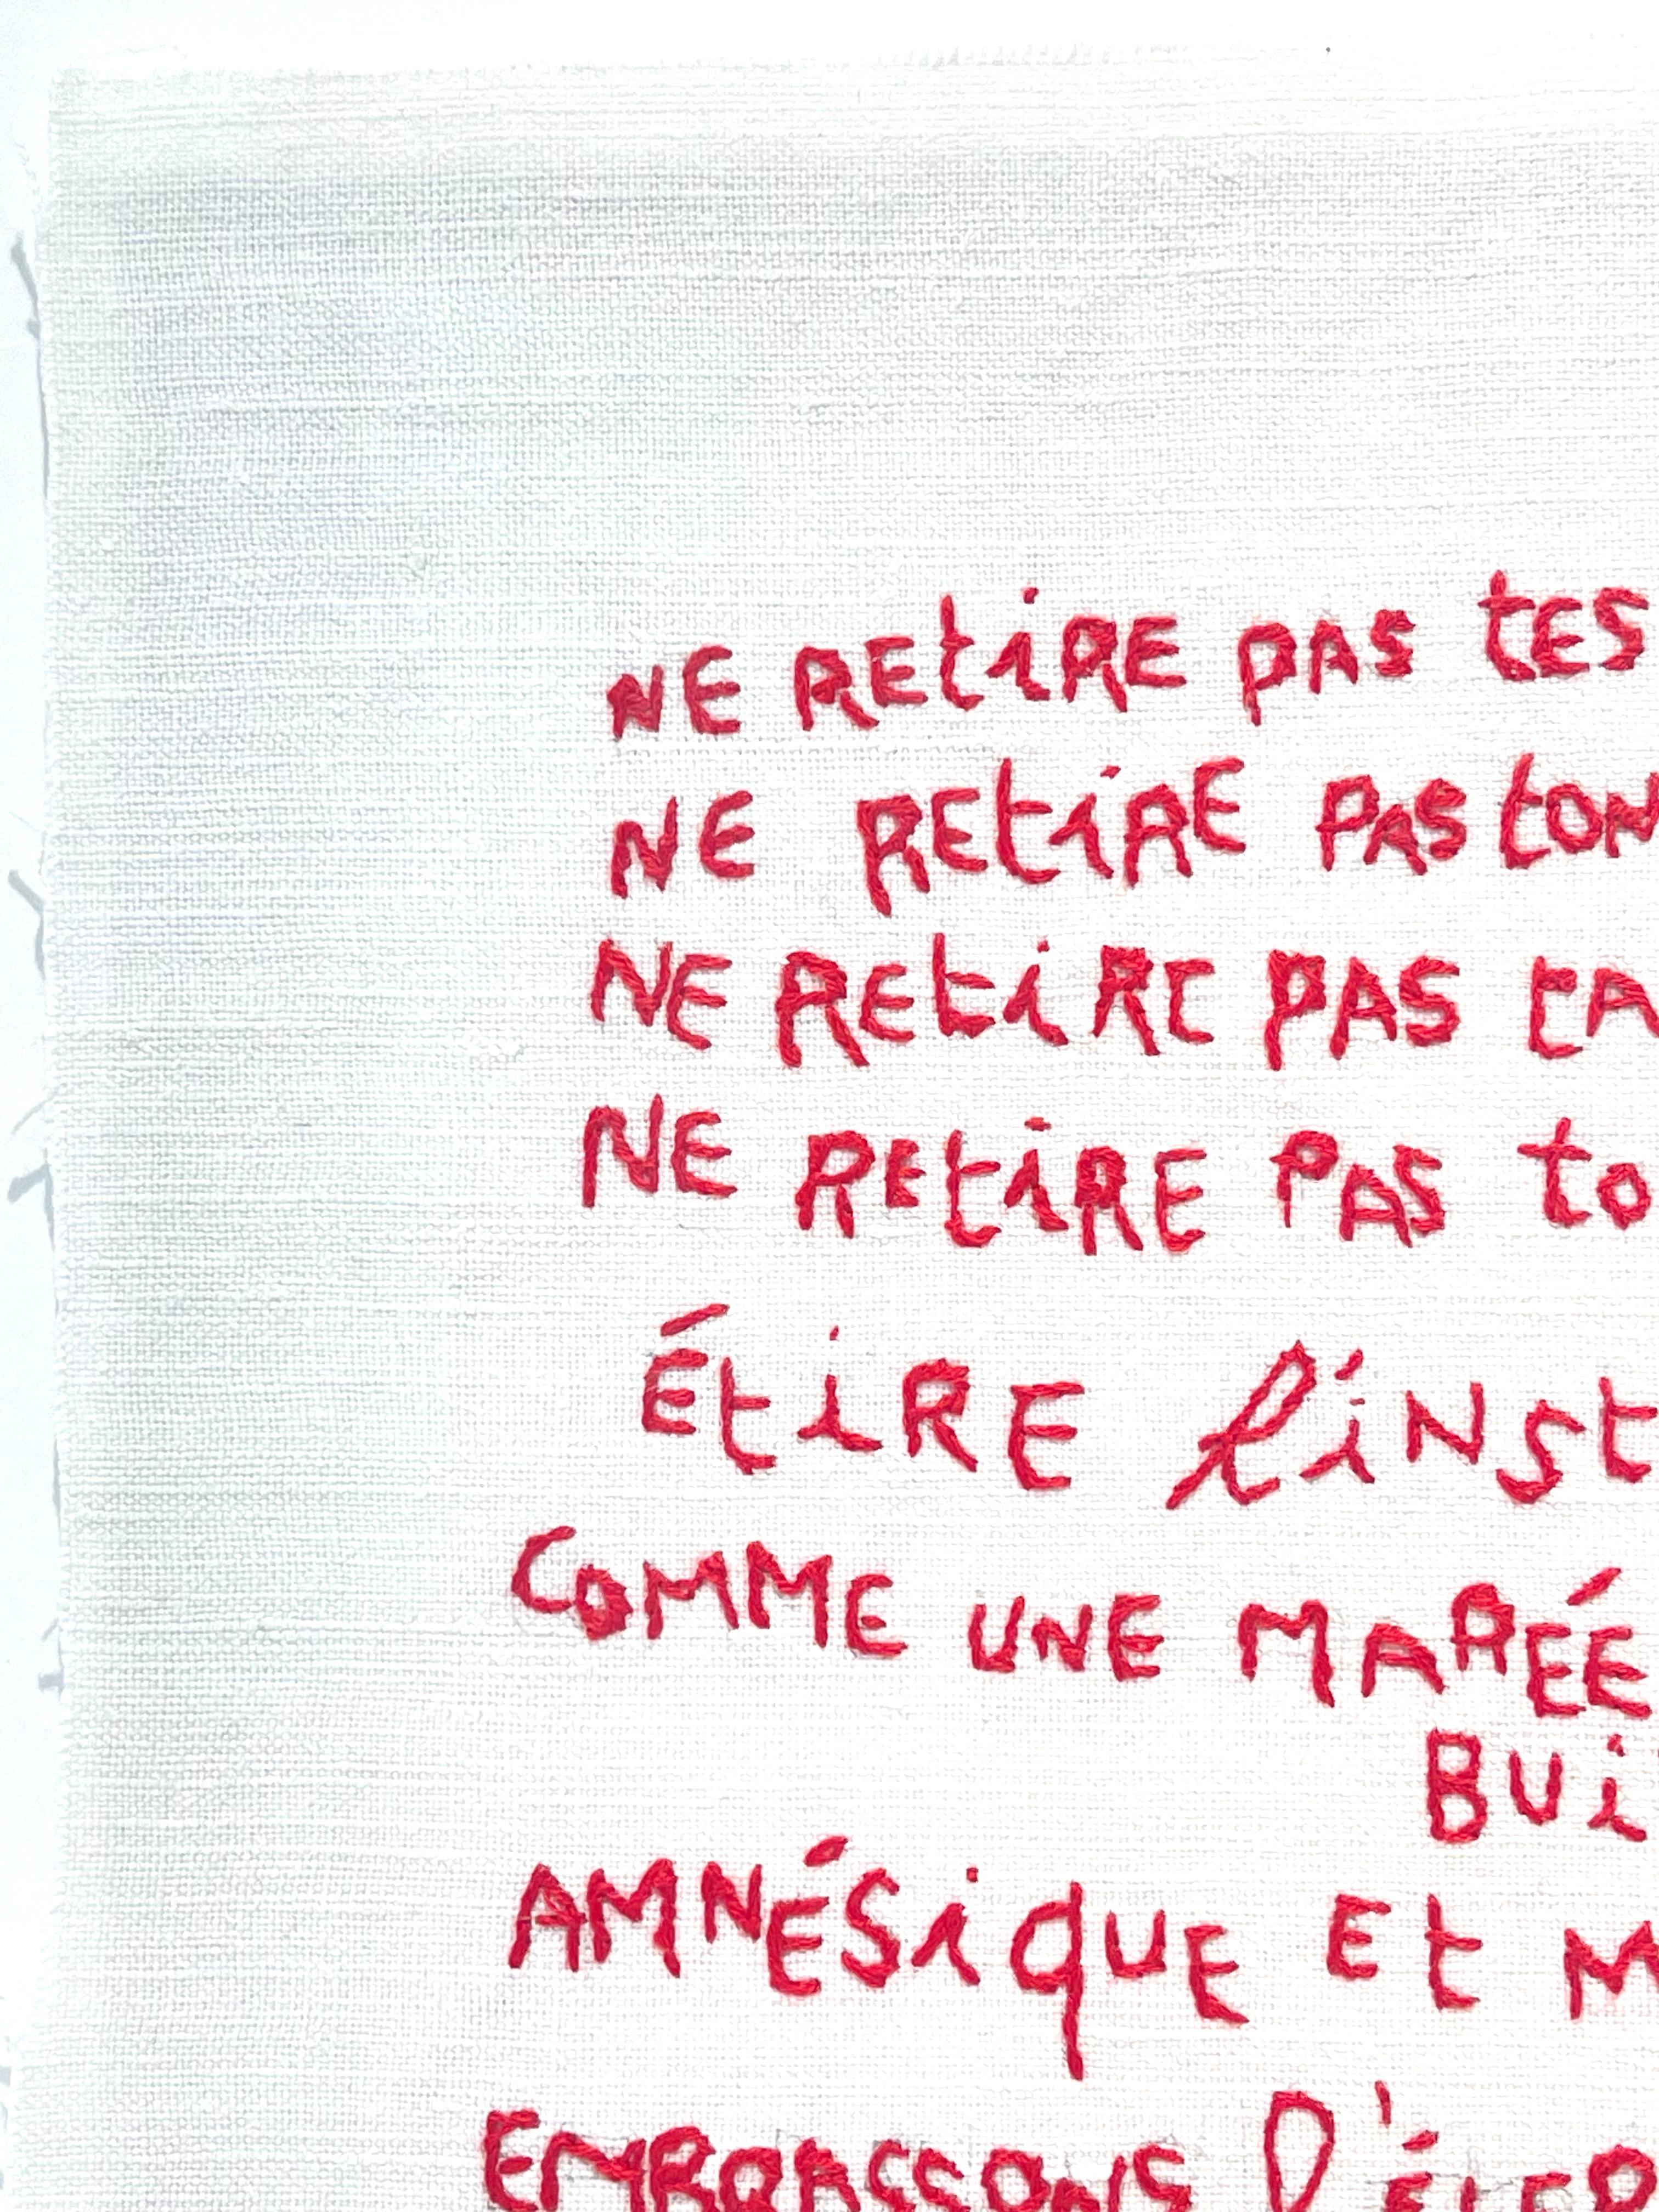 NE REtiRE PAS tES
NE REtiRE PAS tON
NE REtiRE PAS tA
NE REtiRE PAS to
ÉtiRE l'iNSt
COMME UNE MARÉE
BUi
AMNÉSiqUE Et M
EMBRASSONS l'ÉtER